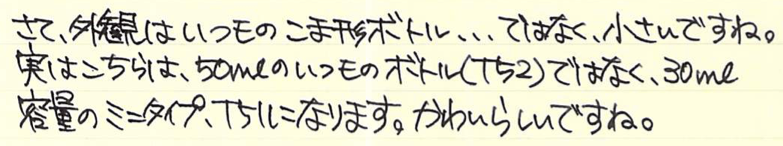 さて、外観はいつものこま形ボトル...ではなく、小さいですね。
実はこちらは、50mlのいつものボトル(T52)ではなく、30ml
容量のミニタイプ、T51になります。かわいらしいですね。